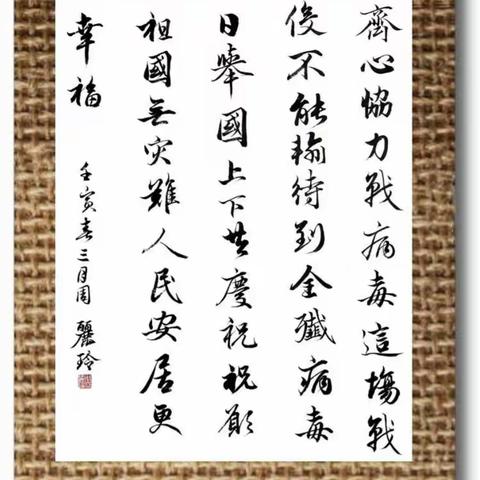 齊心恊力戰病毒這塲戰
役不能輸待到全殲病毒
日舉國上下共慶祝祝願
祖國無灾難人民安居更
幸福
壬寅春三月周 麗玲